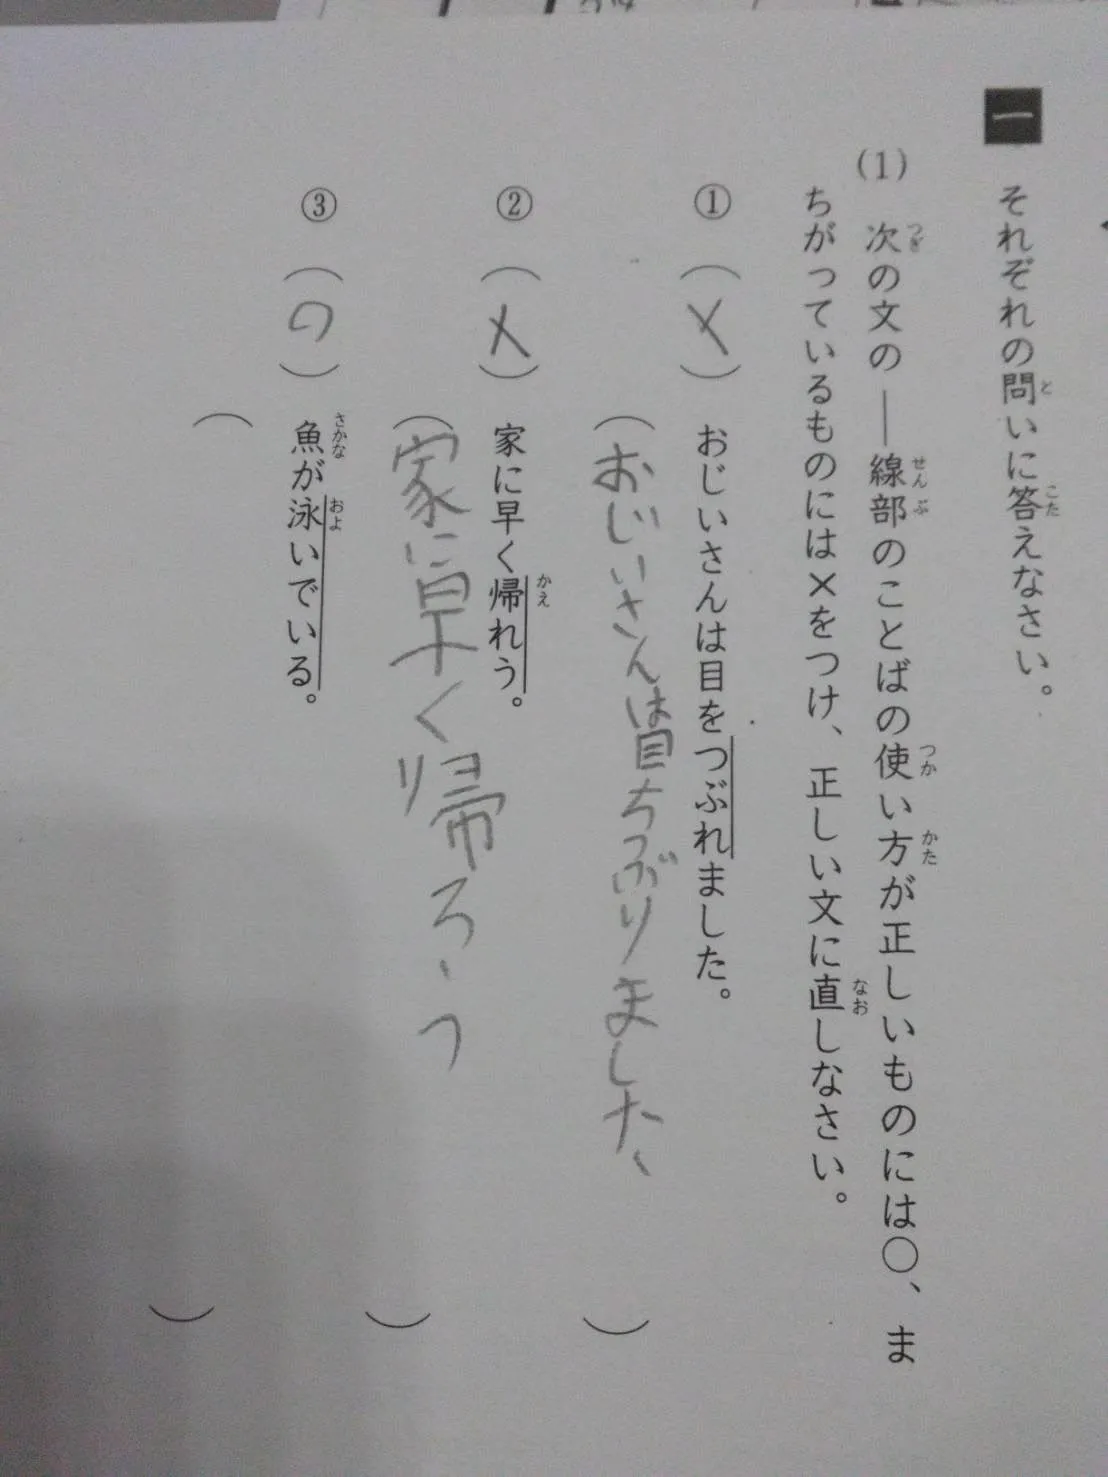 一 それぞれの問いに答えなさい。
(1) 次の文の――線部のことばの使い方が正しいものには○、ま
ちがっているものには×をつけ、正しい文に直しなさい。
① (×) おじいさんは目をつぶれました。
(おじいさんは目ちつぶりました、)
② (×) 家に早く帰れう。
(家に早く帰ろ、う)
③ (○) 魚が泳いでいる。
( )